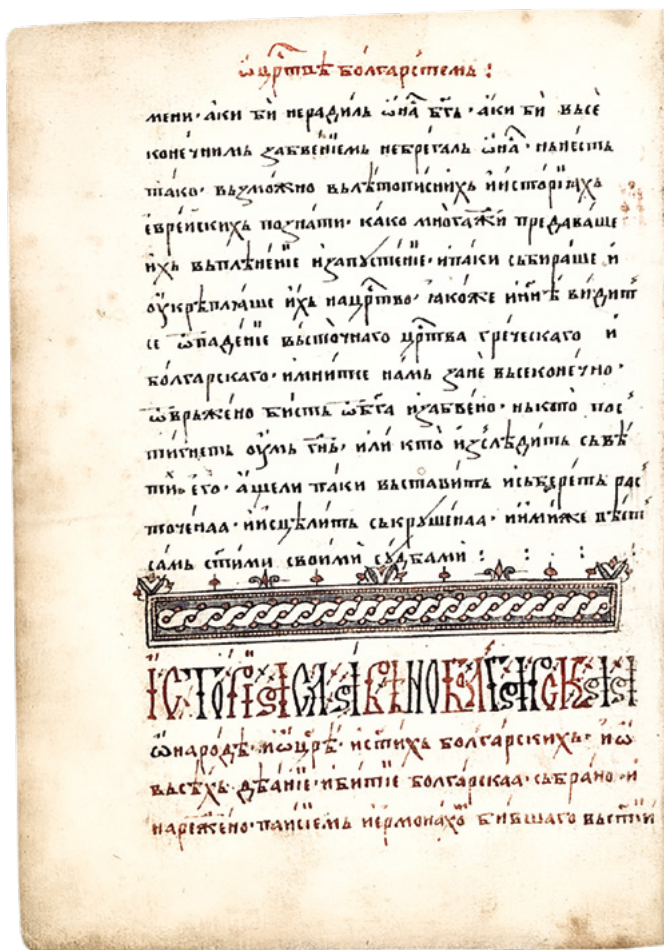 ѡц҃рⷭ҇твѣ болгарстемъ :
мени · аки би нерадилъ ѡна бг҃ъ · аки би въсе
конечнимъ забвенїемъ небрегалъ ѡна · нънестъ
тако · възможно вълѣтописнихъ иисторїахъ
еврейскихъ познати · како многажи предаваше
ихъ въплѣненїе изапустенїе · ипаки събираше и
оукрѣплꙗше ихъ нацр҃тво · ꙗкоже инн҃ѣ видит
се ѿпаденїе въсточнаго цр҃тва греческаго и
болгарскаго · имнитсе намъ зане въсеконечно ·
ѿвръжено бистъ ѿбг҃а изабвено · нъкто пос
тигнетъ оумъ гн҃ь · или кто изслѣдитъ съвѣ
ти его · ащели паки въставитъ исъберетъ рас
точенаа · иисцѣлитъ съкрушенаа · иимиже вѣстъ
самъ ст҃ими своими судбами :
історїа славѣноболгарскаа
ѡнародѣ · иѡцр҃ѣ · ист҃ихъ болгарскихъ · иѡ
въсѣхъ дѣанїе · ибитїе болгарскаа · събрано · и
нареждено · паисїемъ иермонахо бившаго въст҃ѣй